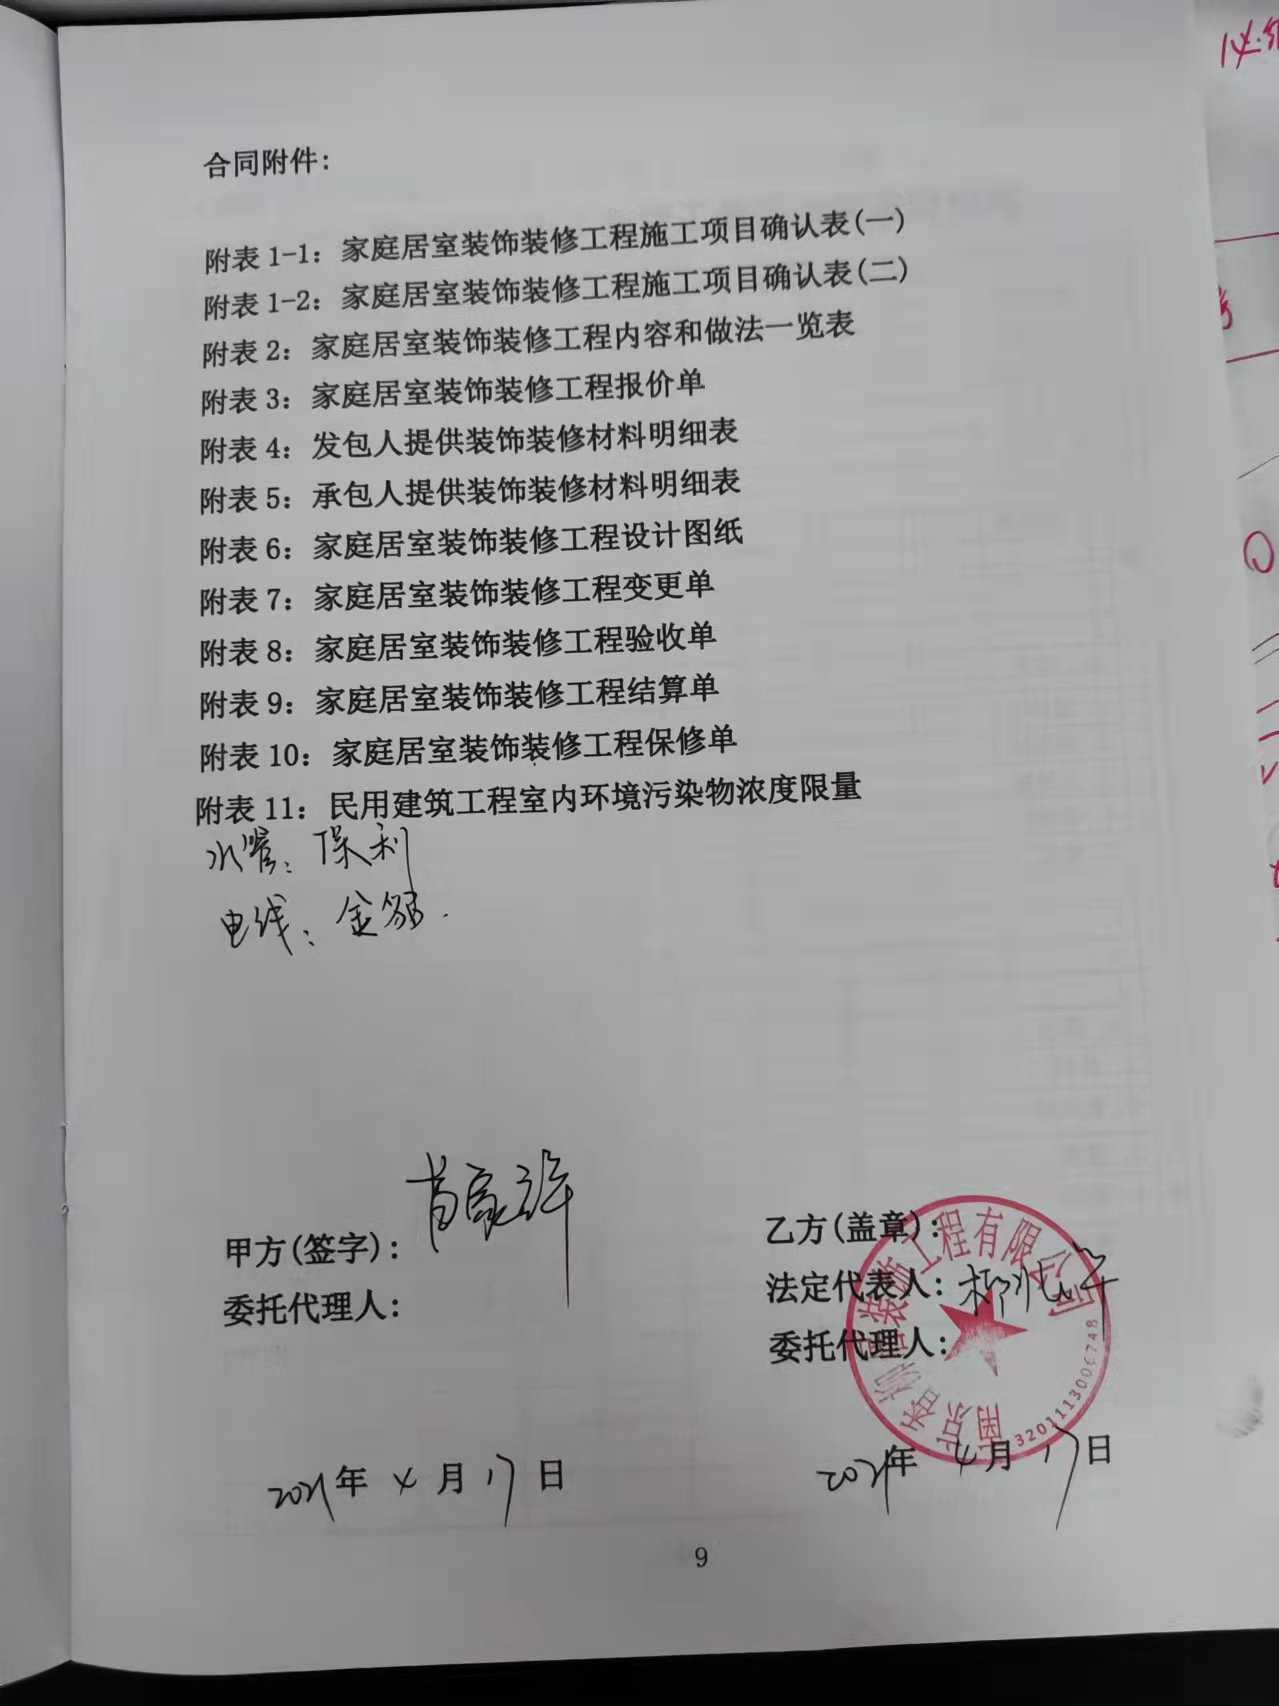 合同附件：
附表 1-1：家庭居室装饰装修工程施工项目确认表(一)
附表 1-2：家庭居室装饰装修工程施工项目确认表(二)
附表 2：家庭居室装饰装修工程内容和做法一览表
附表 3：家庭居室装饰装修工程报价单
附表 4：发包人提供装饰装修材料明细表
附表 5：承包人提供装饰装修材料明细表
附表 6：家庭居室装饰装修工程设计图纸
附表 7：家庭居室装饰装修工程变更单
附表 8：家庭居室装饰装修工程验收单
附表 9：家庭居室装饰装修工程结算单
附表 10：家庭居室装饰装修工程保修单
附表 11：民用建筑工程室内环境污染物浓度限量
水管：保利
电线：金
甲方(签字)：
委托代理人：
乙方(盖章)：
法定代表人：
委托代理人：
南京 装饰工程有限公司
2021年 4 月 17 日
2021年 4 月 17 日
9